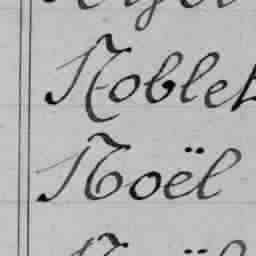 Noblet
Noël